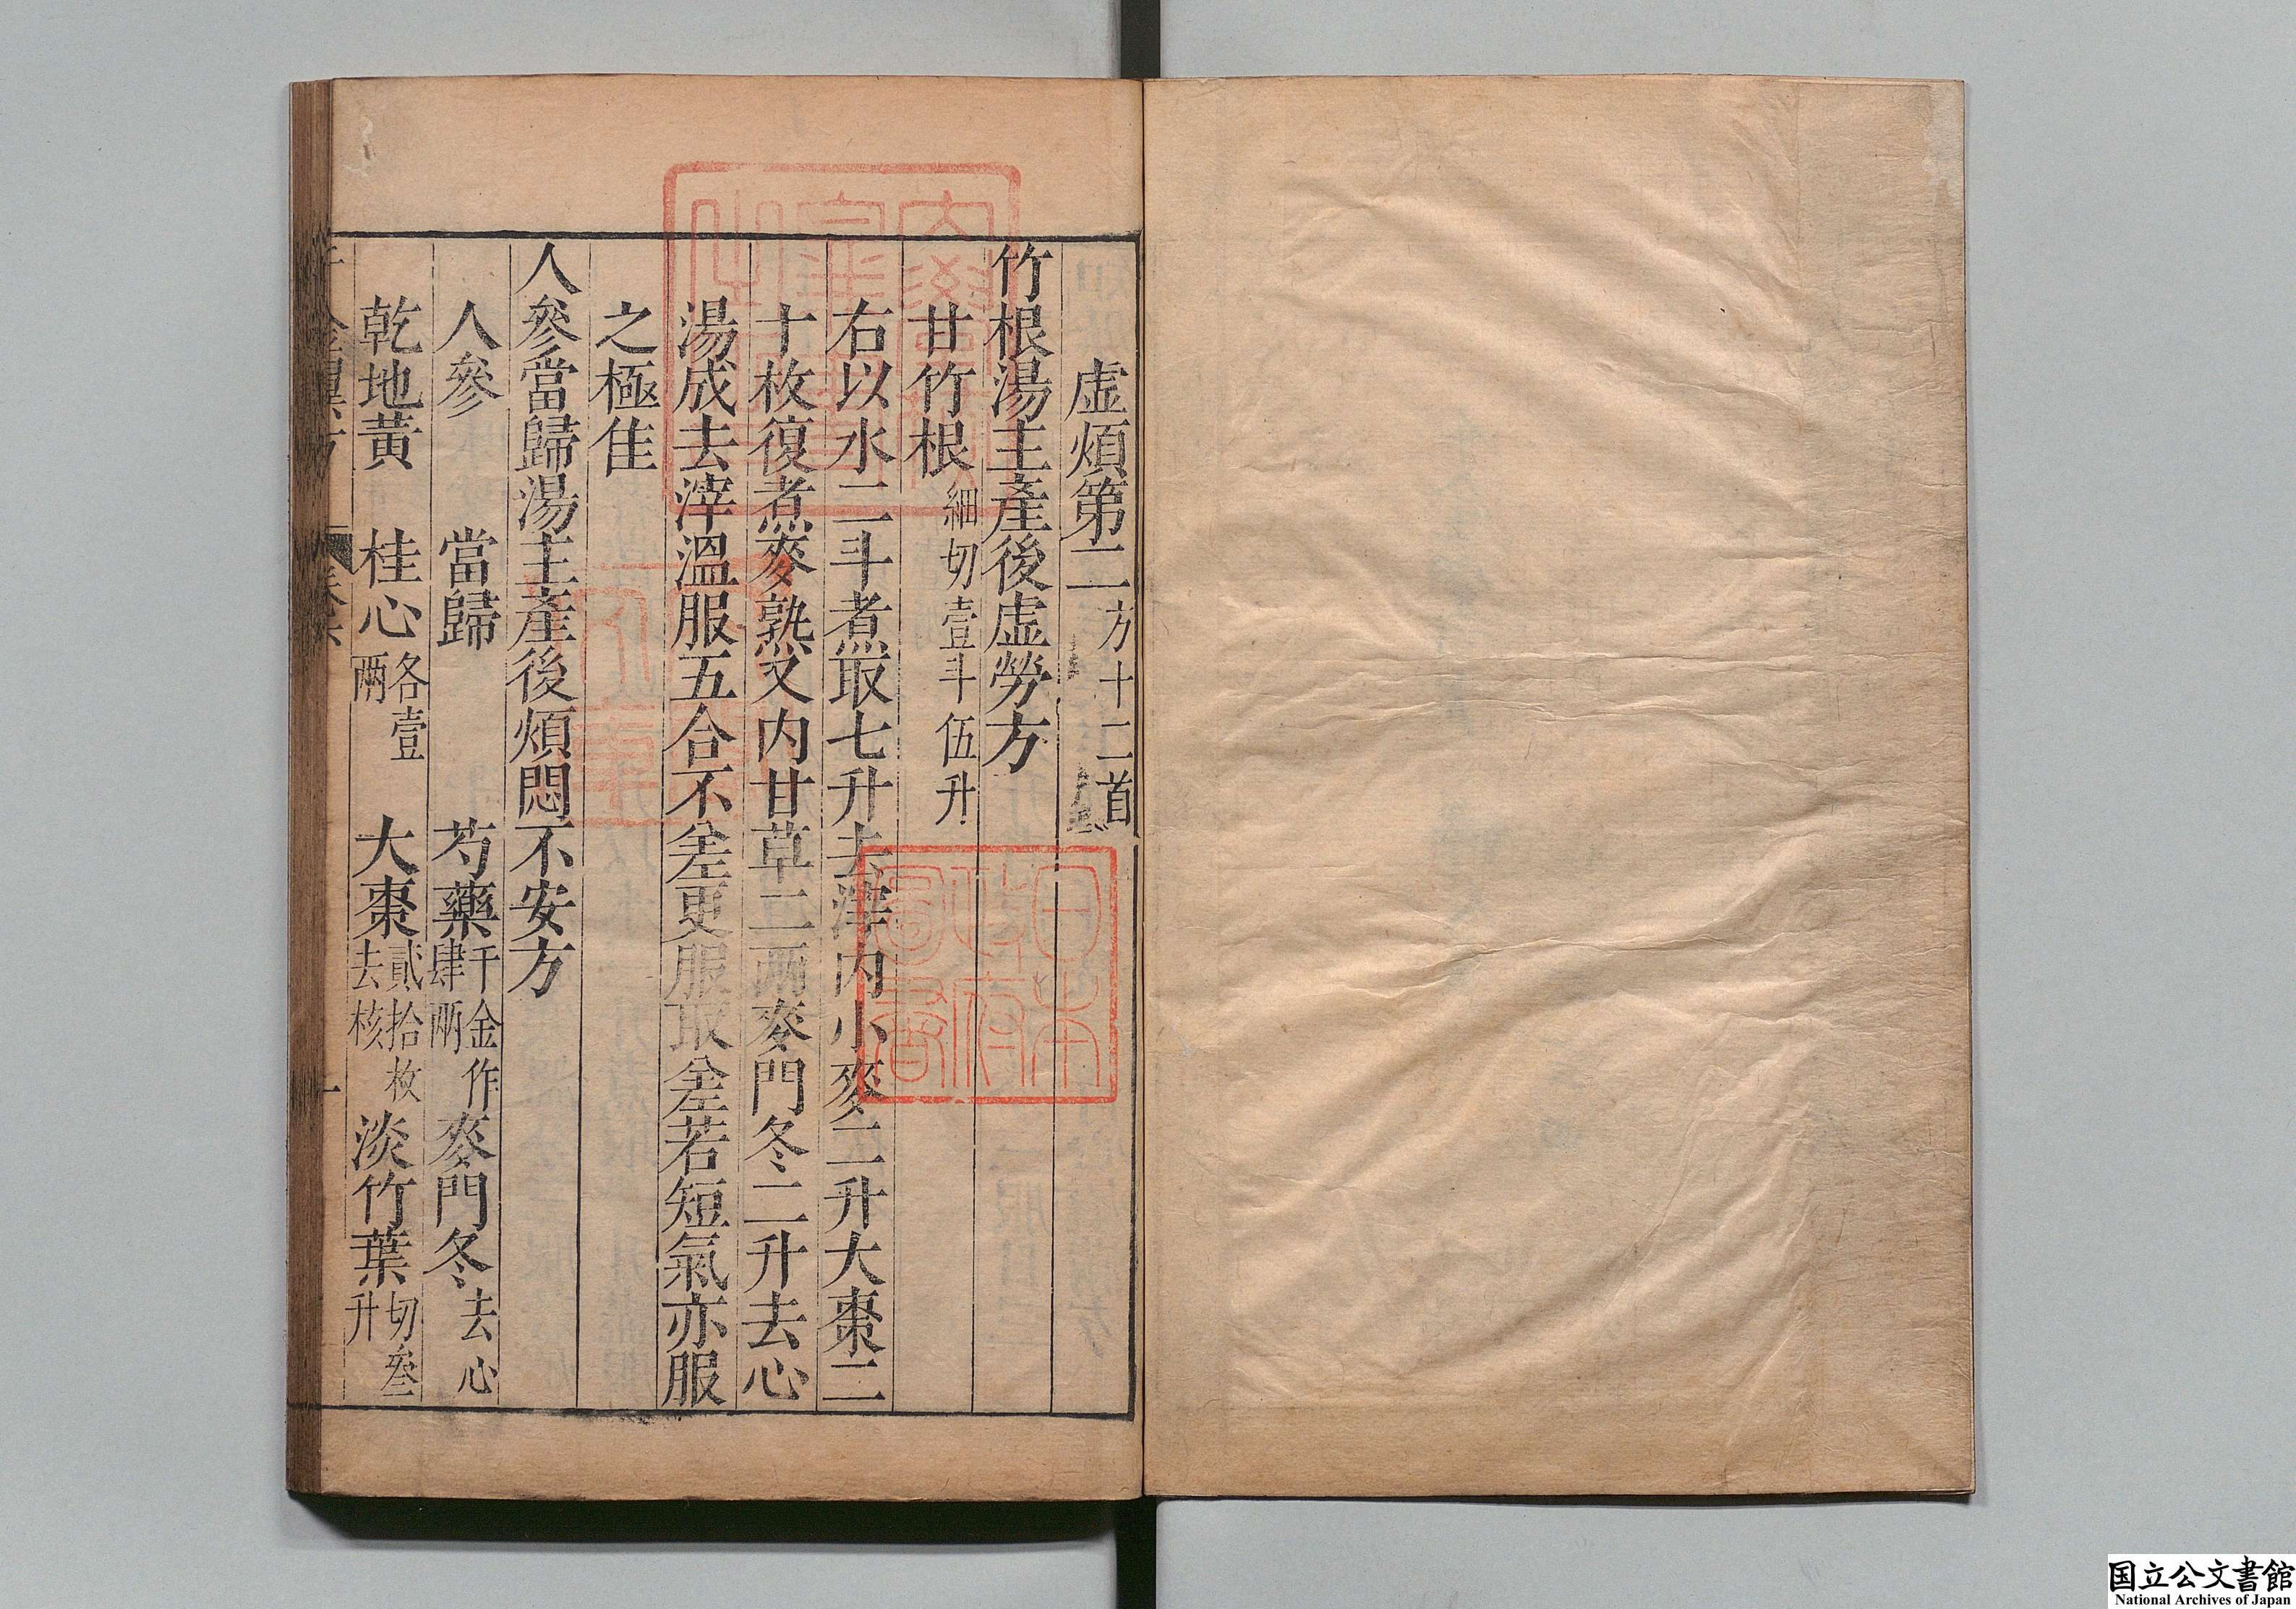 虚煩第二方十二首
竹根湯主產後虚勞方
甘竹根細切壹斗伍升
右以水二斗煮取七升去滓內小麥二升大棗二
十枚復煮麥熟又內甘草二兩麥門冬二升去心
湯成去滓溫服五合不差更服取差若短氣亦服
之極佳
人參當歸湯主產後煩悶不安方
人參 當歸 芍藥千金作肆兩麥門冬去心
乾地黃 桂心各壹兩 大棗貳拾枚去核淡竹葉切叁升
日本政府圖書
国立公文書館
National Archives of Japan